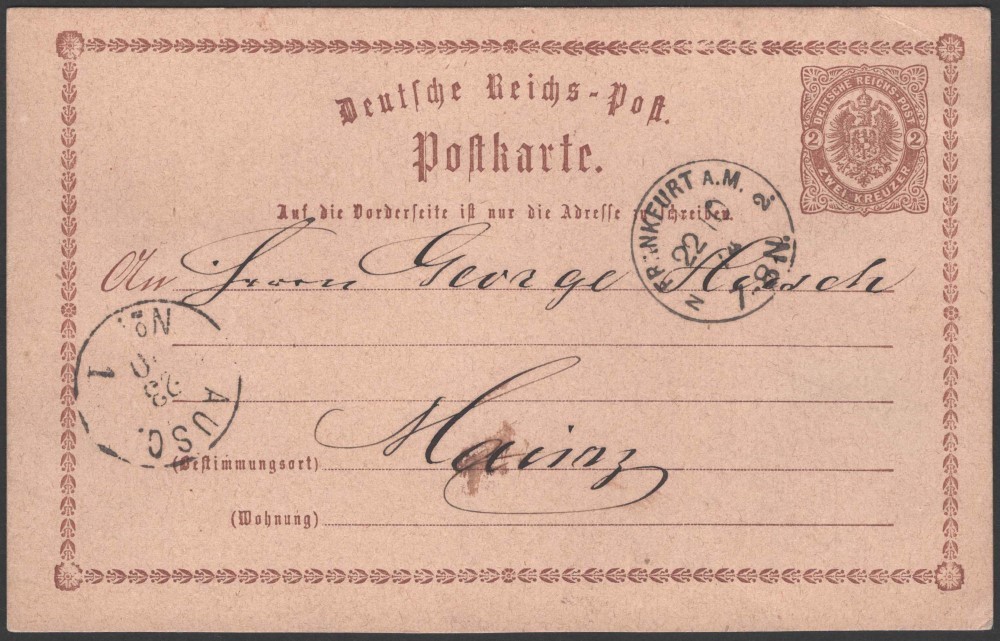 Deutsche Reichs-Post.
Postkarte.
DEUTSCHE REICHS-POST
2 2
ZWEI KREUZER
Auf die Vorderseite ist nur die Adresse zu schreiben.
FRANKFURT A.M. 2.
22
7-8 N.
N
An Herrn George
No 1
AUSG.
23
Mainz
(Bestimmungsort)
(Wohnung)